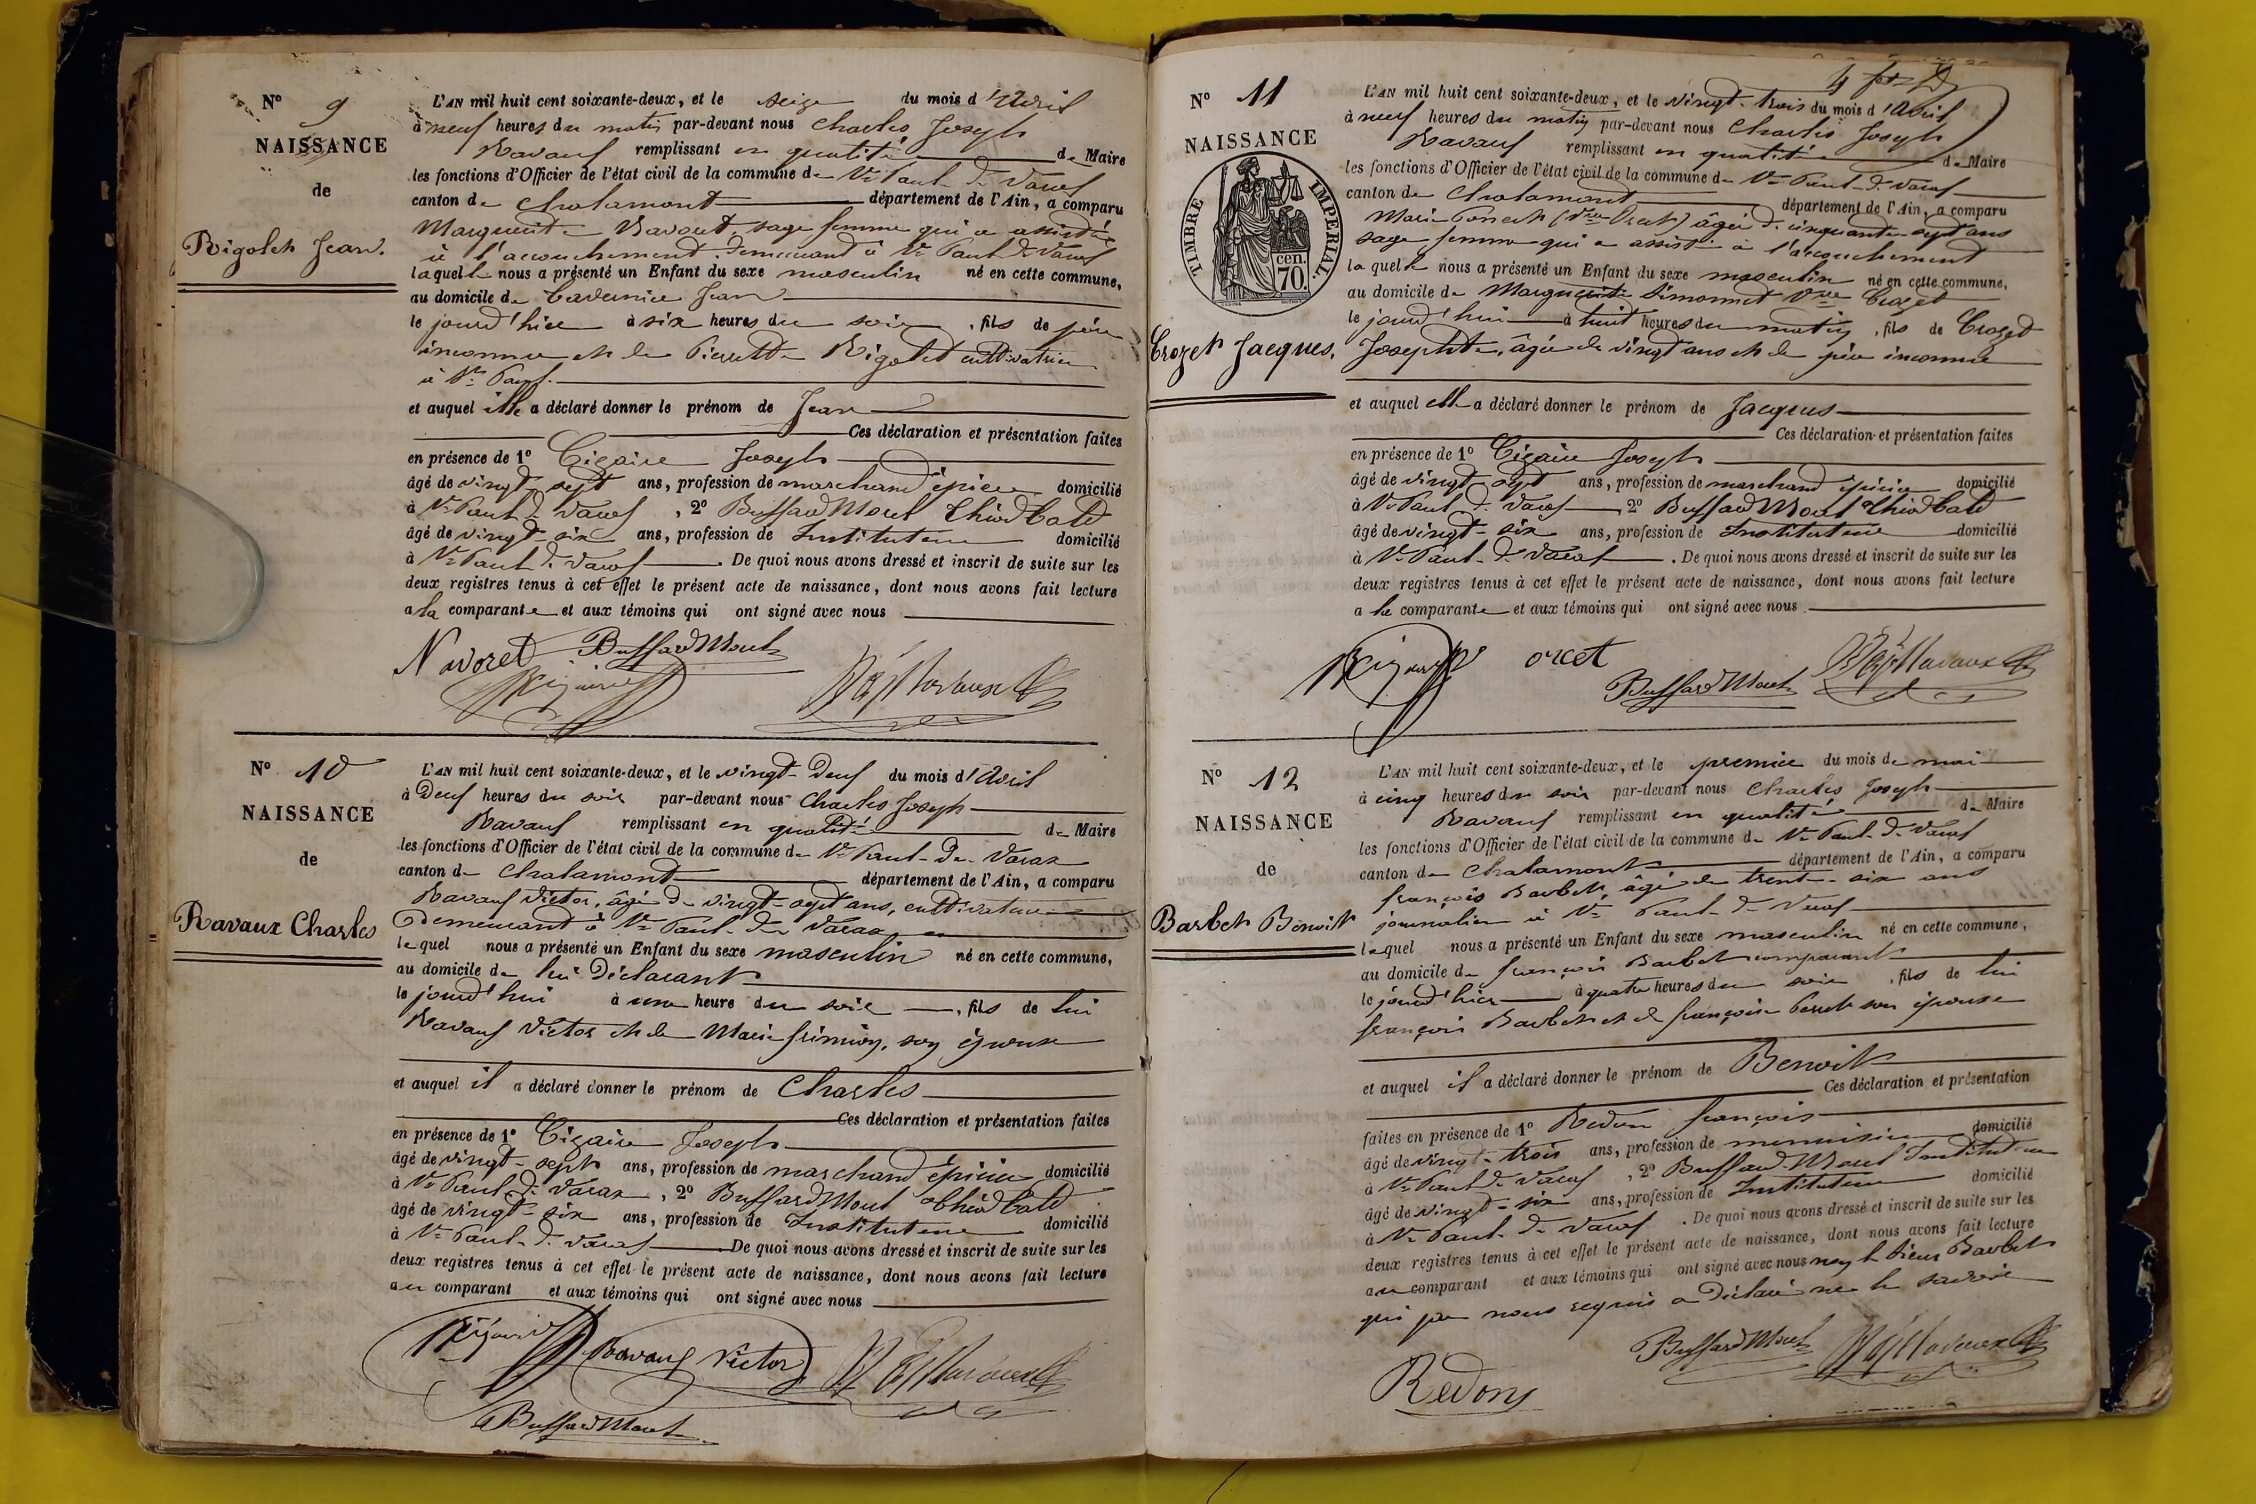 N° 9
NAISSANCE
de
Rigolet Jean.
L'AN mil huit cent soixante-deux, et le seize du mois d'Avril
à neuf heures du matin par-devant nous Charles Joseph
Ravaux remplissant en qualité de Maire
les fonctions d'Officier de l'état civil de la commune de St Paul de Varax
canton de Chalamont département de l'Ain, a comparu
Marguerite Navoret, sage femme qui a assistée
à l'accouchement demeurant à St Paul de Varax
laquelle nous a présenté un Enfant du sexe masculin né en cette commune,
au domicile de Jean
le jourd'hier à six heures du soir, fils de père
inconnu et de Pierrette Rigolet cultivatrice
à St Paul.
et auquel elle a déclaré donner le prénom de Jean
Ces déclaration et présentation faites
en présence de 1° Cizaire Joseph
âgé de vingt-sept ans, profession de marchand épicier domicilié
à St Paul de Varax, 2° Buffard Morel Théodbald
âgé de vingt-six ans, profession de Instituteur domicilié
à St Paul de Varax. De quoi nous avons dressé et inscrit de suite sur les
deux registres tenus à cet effet le présent acte de naissance, dont nous avons fait lecture
a la comparante et aux témoins qui ont signé avec nous
Navoret Buffard Morel
N° 10
NAISSANCE
de
Ravaux Charles
L'AN mil huit cent soixante-deux, et le vingt-deux du mois d'Avril
à deux heures du soir par-devant nous Charles Joseph
Ravaux remplissant en qualité de Maire
les fonctions d'Officier de l'état civil de la commune de St Paul-de Varax
canton de Chalamont département de l'Ain, a comparu
Ravaux Victor, âgé de vingt-sept ans, cultivateur
demeurant à St Paul-de Varax
lequel nous a présenté un Enfant du sexe masculin né en cette commune,
au domicile de lui Déclarant
le jourd'hui à une heure du soir, fils de lui
Ravaux Victor et de Marie son épouse
et auquel il a déclaré donner le prénom de Charles
Ces déclaration et présentation faites
en présence de 1° Cizaire Joseph
âgé de vingt-sept ans, profession de marchand épicier domicilié
à St Paul de Varax, 2° Buffard Morel Théodbald
âgé de vingt-six ans, profession de Instituteur domicilié
à St Paul-de Varax De quoi nous avons dressé et inscrit de suite sur les
deux registres tenus à cet effet le présent acte de naissance, dont nous avons fait lecture
au comparant et aux témoins qui ont signé avec nous
Ravaux Victor
Buffard Morel
N° 11
NAISSANCE
TIMBRE IMPERIAL.
70. cen.
Crozet Jacques.
L'AN mil huit cent soixante-deux, et le vingt-trois du mois d'Avril
à neuf heures du matin par-devant nous Charles Joseph
Ravaux remplissant en qualité de Maire
les fonctions d'Officier de l'état civil de la commune de St Paul-de Varax
canton de Chalamont département de l'Ain, a comparu
Marie âgée de cinquante-sept ans
sage femme qui a assisté à l'accouchement
laquelle nous a présenté un Enfant du sexe masculin né en cette commune,
au domicile de Marguerite Simonnet Vve Crozet
le jourd'hui à huit heures du matin, fils de Crozet
Josephte, âgée de vingt ans et de père inconnu
et auquel elle a déclaré donner le prénom de Jacques
Ces déclaration et présentation faites
en présence de 1° Cizaire Joseph
âgé de vingt-sept ans, profession de marchand épicier domicilié
à St Paul de Varax 2° Buffard Morel Théodbald
âgé de vingt-six ans, profession de Instituteur domicilié
à St Paul-de Varax. De quoi nous avons dressé et inscrit de suite sur les
deux registres tenus à cet effet le présent acte de naissance, dont nous avons fait lecture
a la comparante et aux témoins qui ont signé avec nous
orcet
Buffard Morel
N° 12
NAISSANCE
de
Barbet Benoit
L'AN mil huit cent soixante-deux, et le premier du mois de mai
à cinq heures du soir par-devant nous Charles Joseph
Ravaux remplissant en qualité de Maire
les fonctions d'Officier de l'état civil de la commune de St Paul-de Varax
canton de Chalamont département de l'Ain, a comparu
françois Barbet, âgé de trente-six ans
journalier à St Paul-de Varax
lequel nous a présenté un Enfant du sexe masculin né en cette commune,
au domicile de françois Barbet comparant
le jourd'hier à quatre heures du soir, fils de lui
françois Barbet et de françoise son épouse
et auquel il a déclaré donner le prénom de Benoit
Ces déclaration et présentation
faites en présence de 1° Redon françois
âgé de vingt-trois ans, profession de menuisier domicilié
à St Paul de Varax, 2° Buffard-Morel Instituteur
âgé de vingt-six ans, profession de Instituteur domicilié
à St Paul-de Varax. De quoi nous avons dressé et inscrit de suite sur les
deux registres tenus à cet effet le présent acte de naissance, dont nous avons fait lecture
au comparant et aux témoins qui ont signé avec nous non le sieur Barbet
qui par nous requis a déclaré ne le savoir
Buffard Morel
Redon